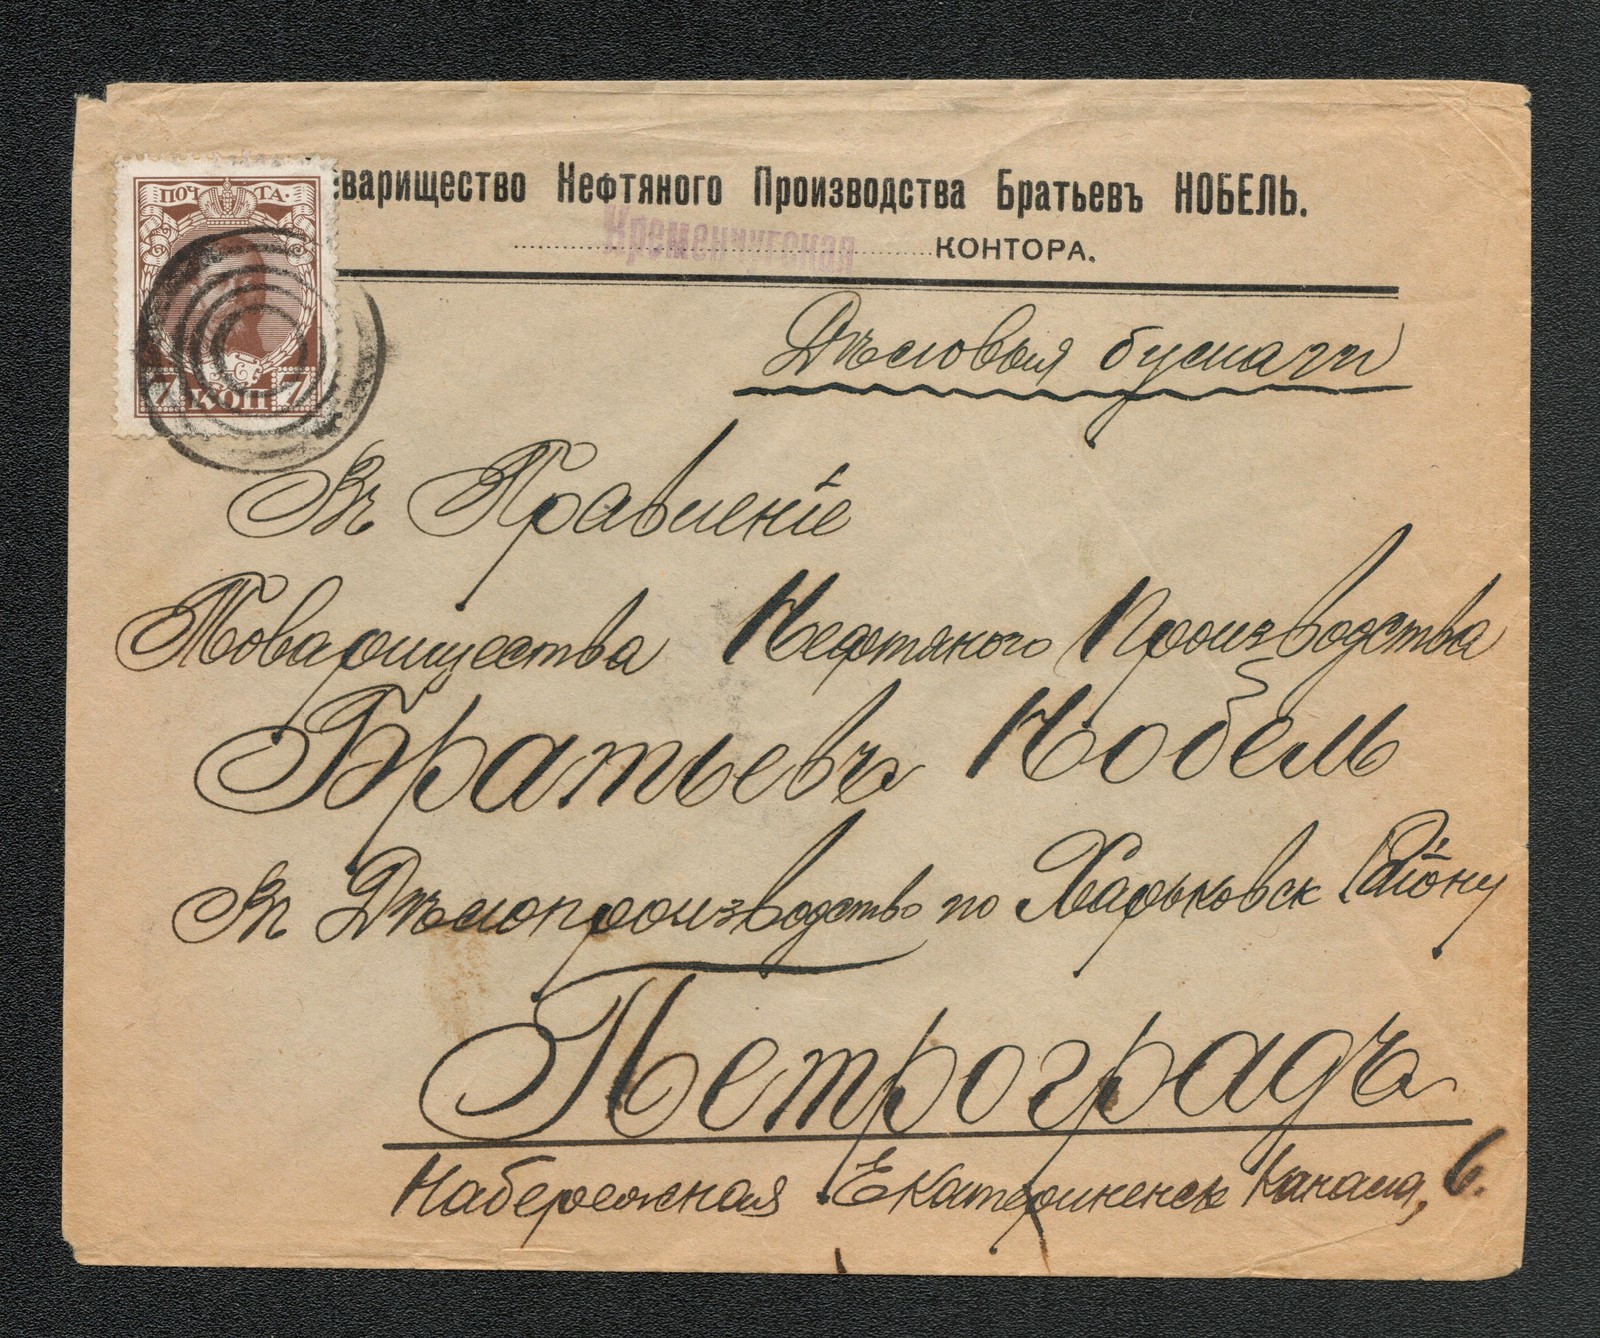 ПОЧТА.
7 КОП 7
варищество Нефтяного Производства Братьевъ НОБЕЛЬ.
Кременчугская КОНТОРА.
Дѣловыя бумаги
Въ Правленіе
Товарищества Нефтяного Производства
Братьевъ Нобель
Въ Дѣлопроизводство по Харьковск Району
Петроградъ
Набережная Екатериненск Канала, 6.